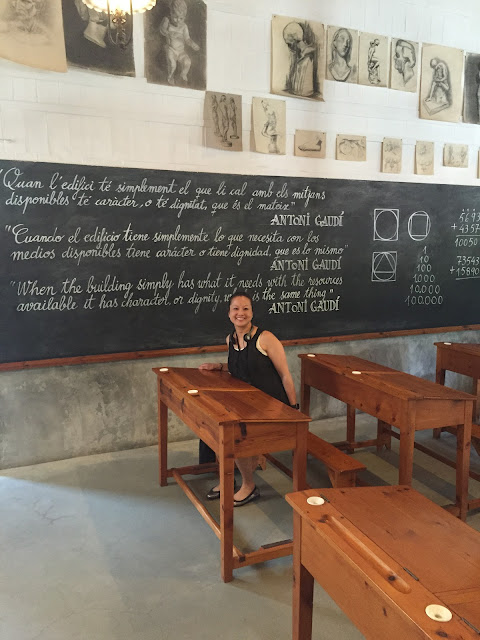 "Quan l'edifici té simplement el que li cal amb els mitjans
disponibles té caràcter, o té dignitat, que és el mateix"
ANTONI GAUDÍ
"Cuando el edificio tiene simplemente lo que necesita con los
medios disponibles tiene carácter o tiene dignidad, que es lo mismo"
ANTONI GAUDÍ
"When the building simply has what it needs with the resources
available it has charactol, or dignity, is the same thing"
ANTONI GAUDÍ
5693
+ 4357
10050
73543
+ 15890
1
10
100
1000
10.000
100.000